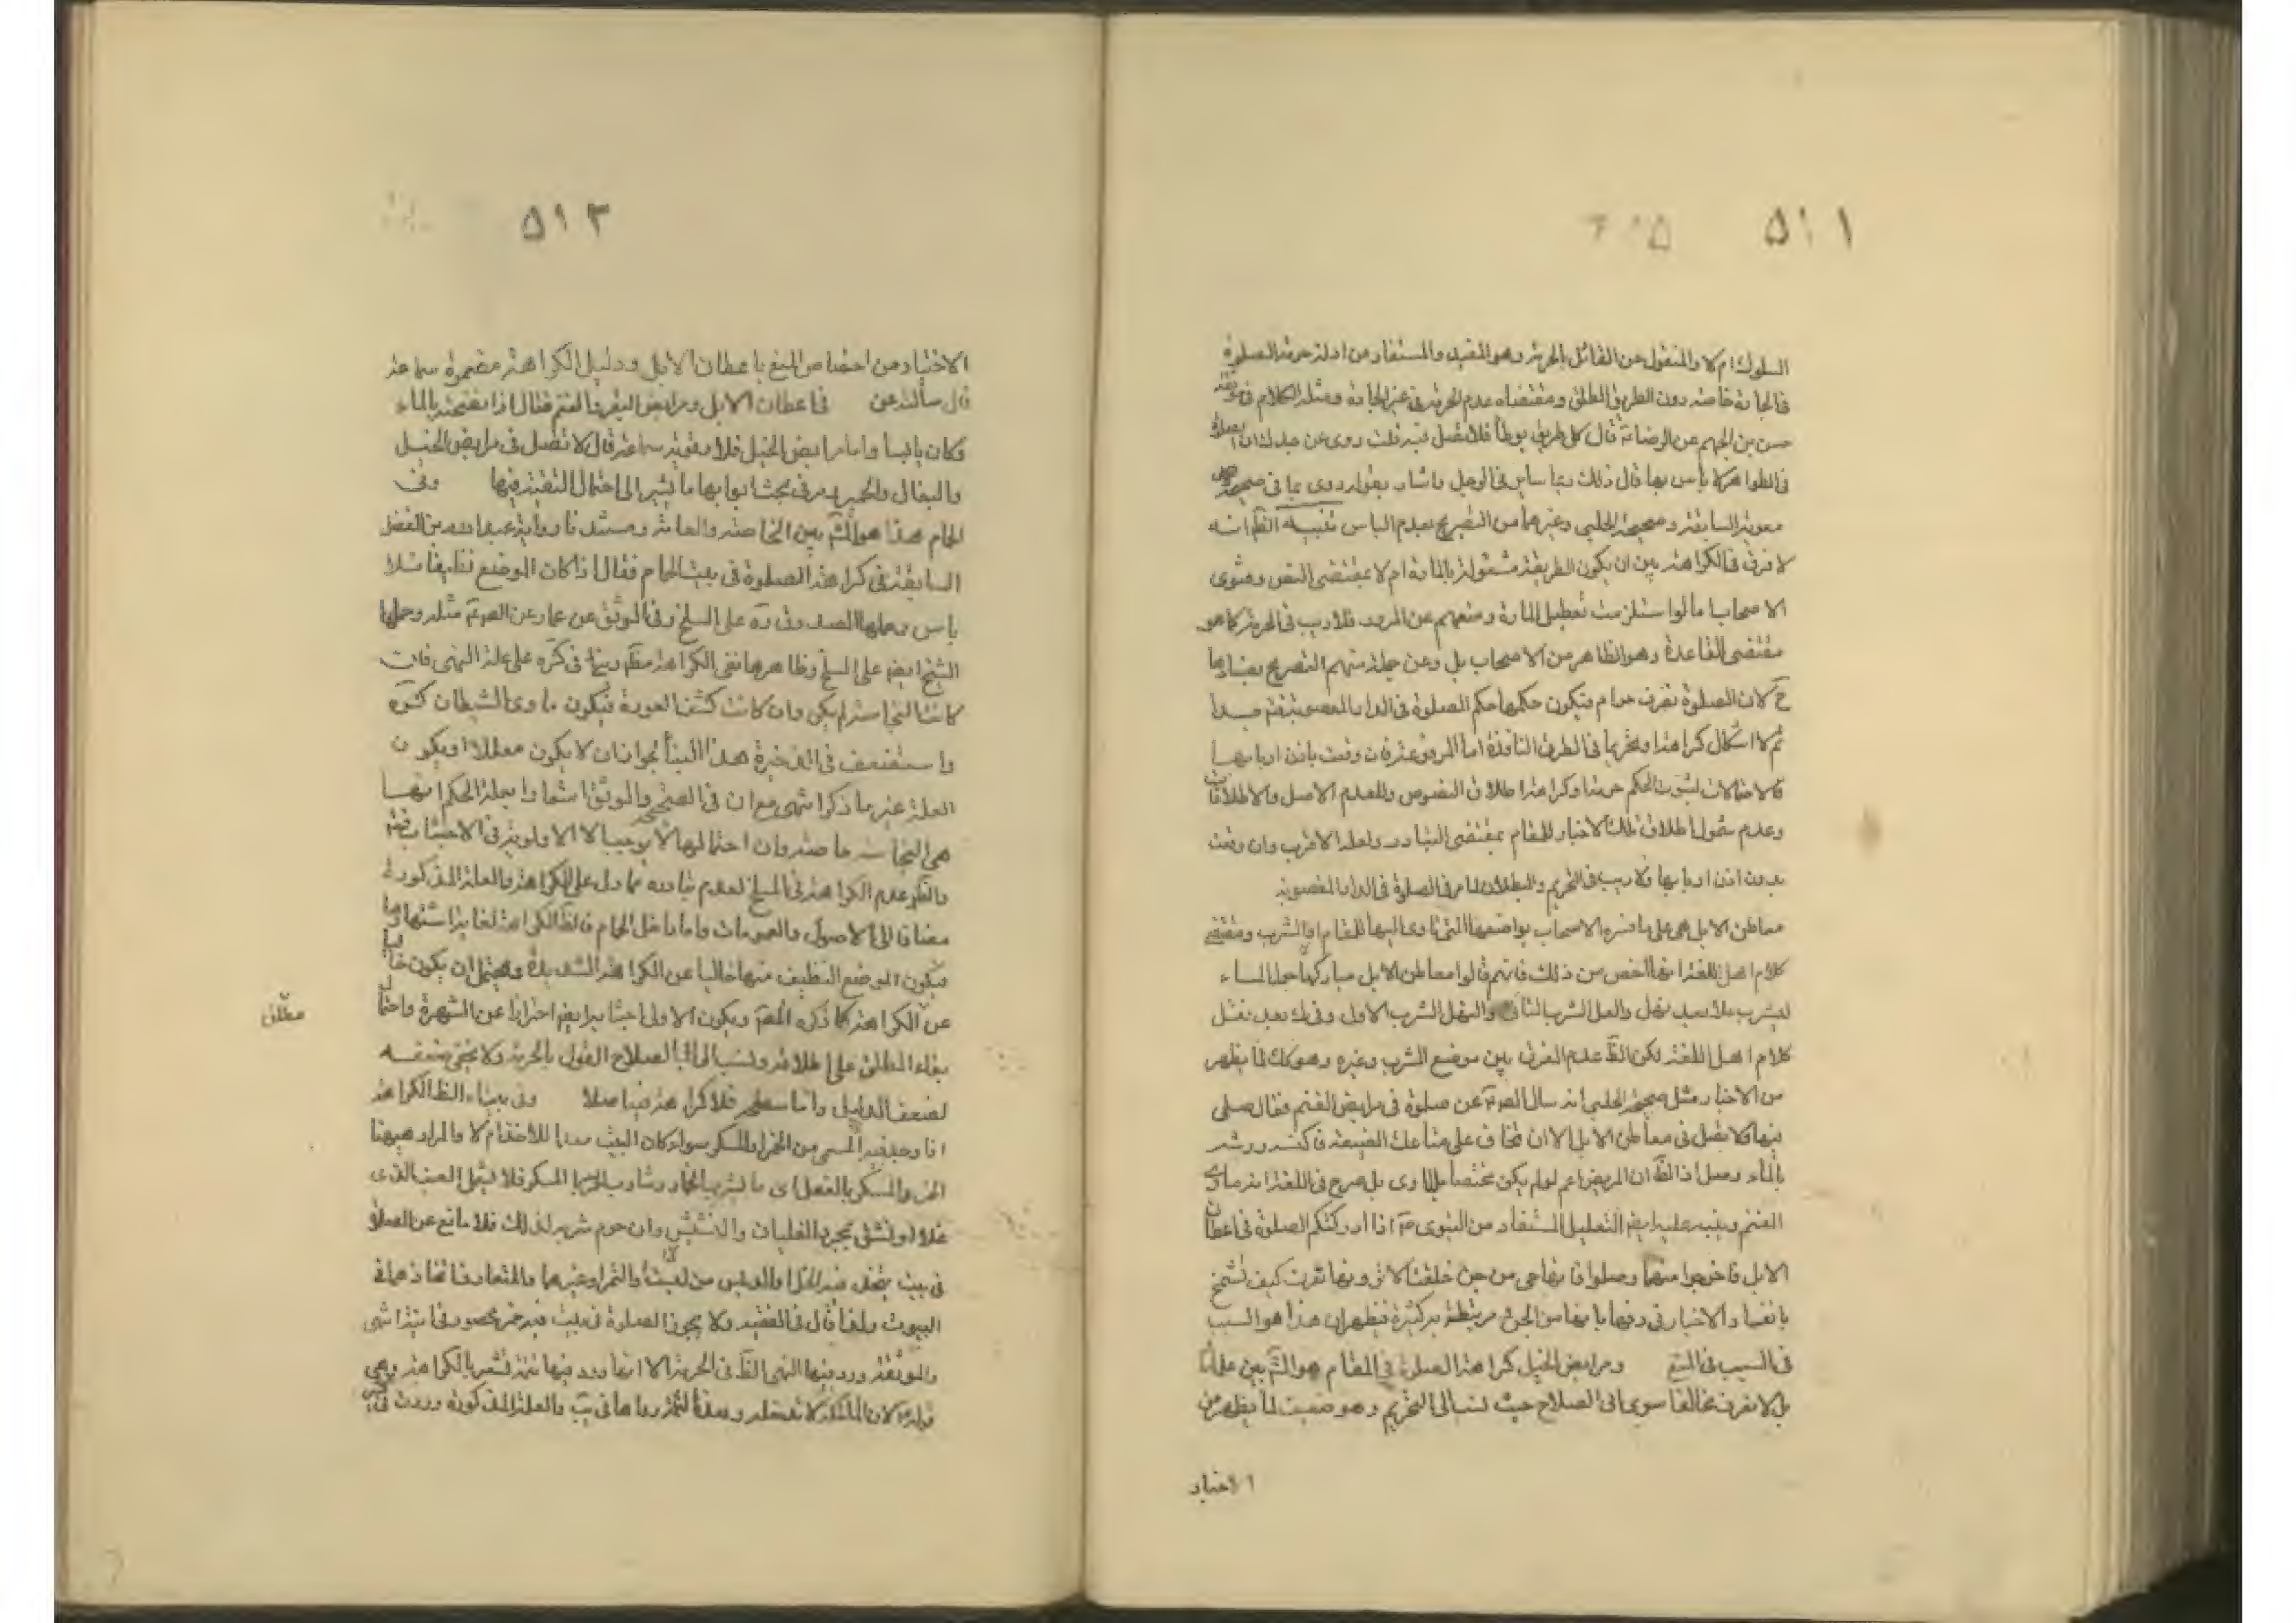 ٥١١
السلوك ام لا والمنقول عن القائل بالحرمة وهو المفيد والمستفاد من ادلة حرمة الصلوة
فى الجادة خاصة دون الطريق المطلق ومقتضاه عدم الحرمة فى غير الجادة ومثله الكلام فى
حسن بن الجهم عن الرضا ع قال كل طريق يوطأ فلا تصل فيه قلت روى عن جدك ان الصلوة
فى الظواهر لا بأس بها قال ذلك ربما سايرنى الرجل واشار بقوله روى بما فى صحيحة
معوية السابقة وصحيحة الحلبى وغيرهما من التصريح بعدم الباس تنبيه الظ انه
لا فرق فى الكراهة بين ان يكون الطريقة مشغولة بالمارة ام لا بمقتضى النص وفتوى
الاصحاب اما لو استلزمت تعطيل المارة ومنعهم عن المرور فلا ريب فى الحرمة كما هو
مقتضى القاعدة وهو الظاهر من الاصحاب بل وعن جملة منهم التصريح بفسادها
ح لان الصلوة تصرف حرام فيكون حكمها حكم الصلوة فى الدار المغصوبة فتم جدا
ثم لا اشكال كراهة وتحريما فى الطرق النافذة اما المرفوعة فان وقعت باذن اربابها
فالاحتمالات لثبوت الحكم حرمة وكراهة اطلاق النصوص وللعدم الاصل والاطلاقات
وعدم شمول اطلاق تلك الاخبار للمقام بمقتضى التبادر ولعله الاقرب وان وقعت
بدون اذن اربابها فلا ريب فى التحريم والبطلان لما مر فى الصلوة فى الدار المغصوبة
معاطن الابل هى على ما فسره الاصحاب مواضعها التى تاوى اليها للمقام والشرب ومقتضى
كلام اهل اللغة انها اخص من ذلك فانهم قالوا معاطن الابل مباركها حول الماء
لتشرب عللا بعد نهل والعل الشرب الثانى والنهل الشرب الاول وفى ك بعد نقل
كلام اهل اللغة لكن الظ عدم الفرق بين موضع الشرب وغيره وهو كك لما يظهر
من الاخبار مثل صحيحة الحلبى انه سال الصو عن صلوة فى مرابض الغنم فقال صلى
فيها ولا تصل فى معاطن الابل الا ان تخاف على متاعك الضيعة فاكنسه ورشه
بالماء وصل اذ الظ ان المربض اعم لو لم يكن مختصا بالماوى بل صرح فى اللغة انه ماوى
الغنم وينبه عليه ايضا التعليل المستفاد من النبوى ص اذا ادركتكم الصلوة فى اعطان
الابل فاخرجوا منها وصلوا فانها جن من جن خلقت الا ترونها نفرت كيف تشمخ
بانفها والاخبار فى وصفها بانها من الجن مرتبطة به كثيرة فيظهر ان هذا هو السبب
فى السبب فى المنع ومرابض الخيل كراهة الصلوة فى المقام هو المش بين علمائنا
بل لا نعرف مخالفا سوى ابى الصلاح حيث نسب الى التحريم وهو ضعيف لما يظهر من
الاخبار
٥١٢
الاخبار من اختصاص المنع باعطان الابل ودليل الكراهة مضمرة سماعة
قال سألته عن فى اعطان الابل ومرابض البقر والغنم فقال اذا نضحته بالماء
وكان يابسا واما مرابض الخيل فلا وموثقة سماعة قال لا تصل فى مرابض الخيل
والبغال والحمير ومر فى بحث ابوابها ما يشير الى احتمال التقية فيها وفى
الحمام هذا هو المش بين الخاصة والعامة ومستندنا رواية عبد الله بن الفضل
السابقة فى كراهة الصلوة فى بيت الحمام فقال اذا كان الموضع نظيفا فلا
باس وحملها الصدوق ره على المسلخ وفى الموثق عن عمار عن الصو مثله وحملها
الشيخ ايضا على المسلخ وظاهرها نفى الكراهة مطلقا وبنى فى كره على علة النهى فان
كانت النجاسة لم يكن وان كانت كشف العورة فيكون ماوى الشيطان كره
واستضعف فى الذخيرة هذا البناء لجواز ان لا يكون معللا او يكون
العلة غير ما ذكر انتهى مع ان فى الصحيح والموثق اشعارا بعلة الحكم انها
هى النجاسة خاصة وان احتمالها لا يوجب الا الاولوية فى الاجتناب فتم
والظ عدم الكراهة فى المسلخ لعدم تبادره مما دل على الكراهة والعلة المذكورة
مضافا الى الاصول والعمومات واما داخل الحمام فالظ الكراهة لغايرا شتهارها
فيكون الموضع النظيف منها خاليا عن الكراهة الشديدة ويحتمل ان يكون خاليا
عن الكراهة كما ذكره المص ويكون الاولى اجتنابه ايضا احترازا عن الشهرة واحتمال
بقاء المطلق على اطلاقه ونسب الى ابى الصلاح القول بالحرمة ولا يخفى ضعفه
مطلق
لضعف الدليل واما سطحه فلا كراهة فيه اصلا وفى بيت الظ الكراهة
اذا وجد فيه المسمى من الخمر او المسكر سواء كان البيت معدا للاحتفاظ ام لا والمراد ههنا
الخمر والمسكر بالفعل اى ما يشربه الخمار وشارب الخمر والمسكر فلا يشمل العنب الذى
غلا او نش بمجرد الغليان والنشيش وان حرم شربه لذلك فلا مانع عن الصلوة
فى بيت يتخذ فيه الخل والدبس من العنب او التمر وغيرهما والمتعارف اتخاذهما فى
البيوت ولذا قال فى الفقيه ولا يجوز الصلوة فى بيت فيه خمر محصور فى انية انتهى
والموثقة ورد فيها النهى الظ فى الحرمة الا انها ورد فيها تتمة تشعر بالكراهة وهى
قوله ع لان الملائكة لا تدخله وبعدة التمز رواها فى يب والعلة المذكورة وردت فى